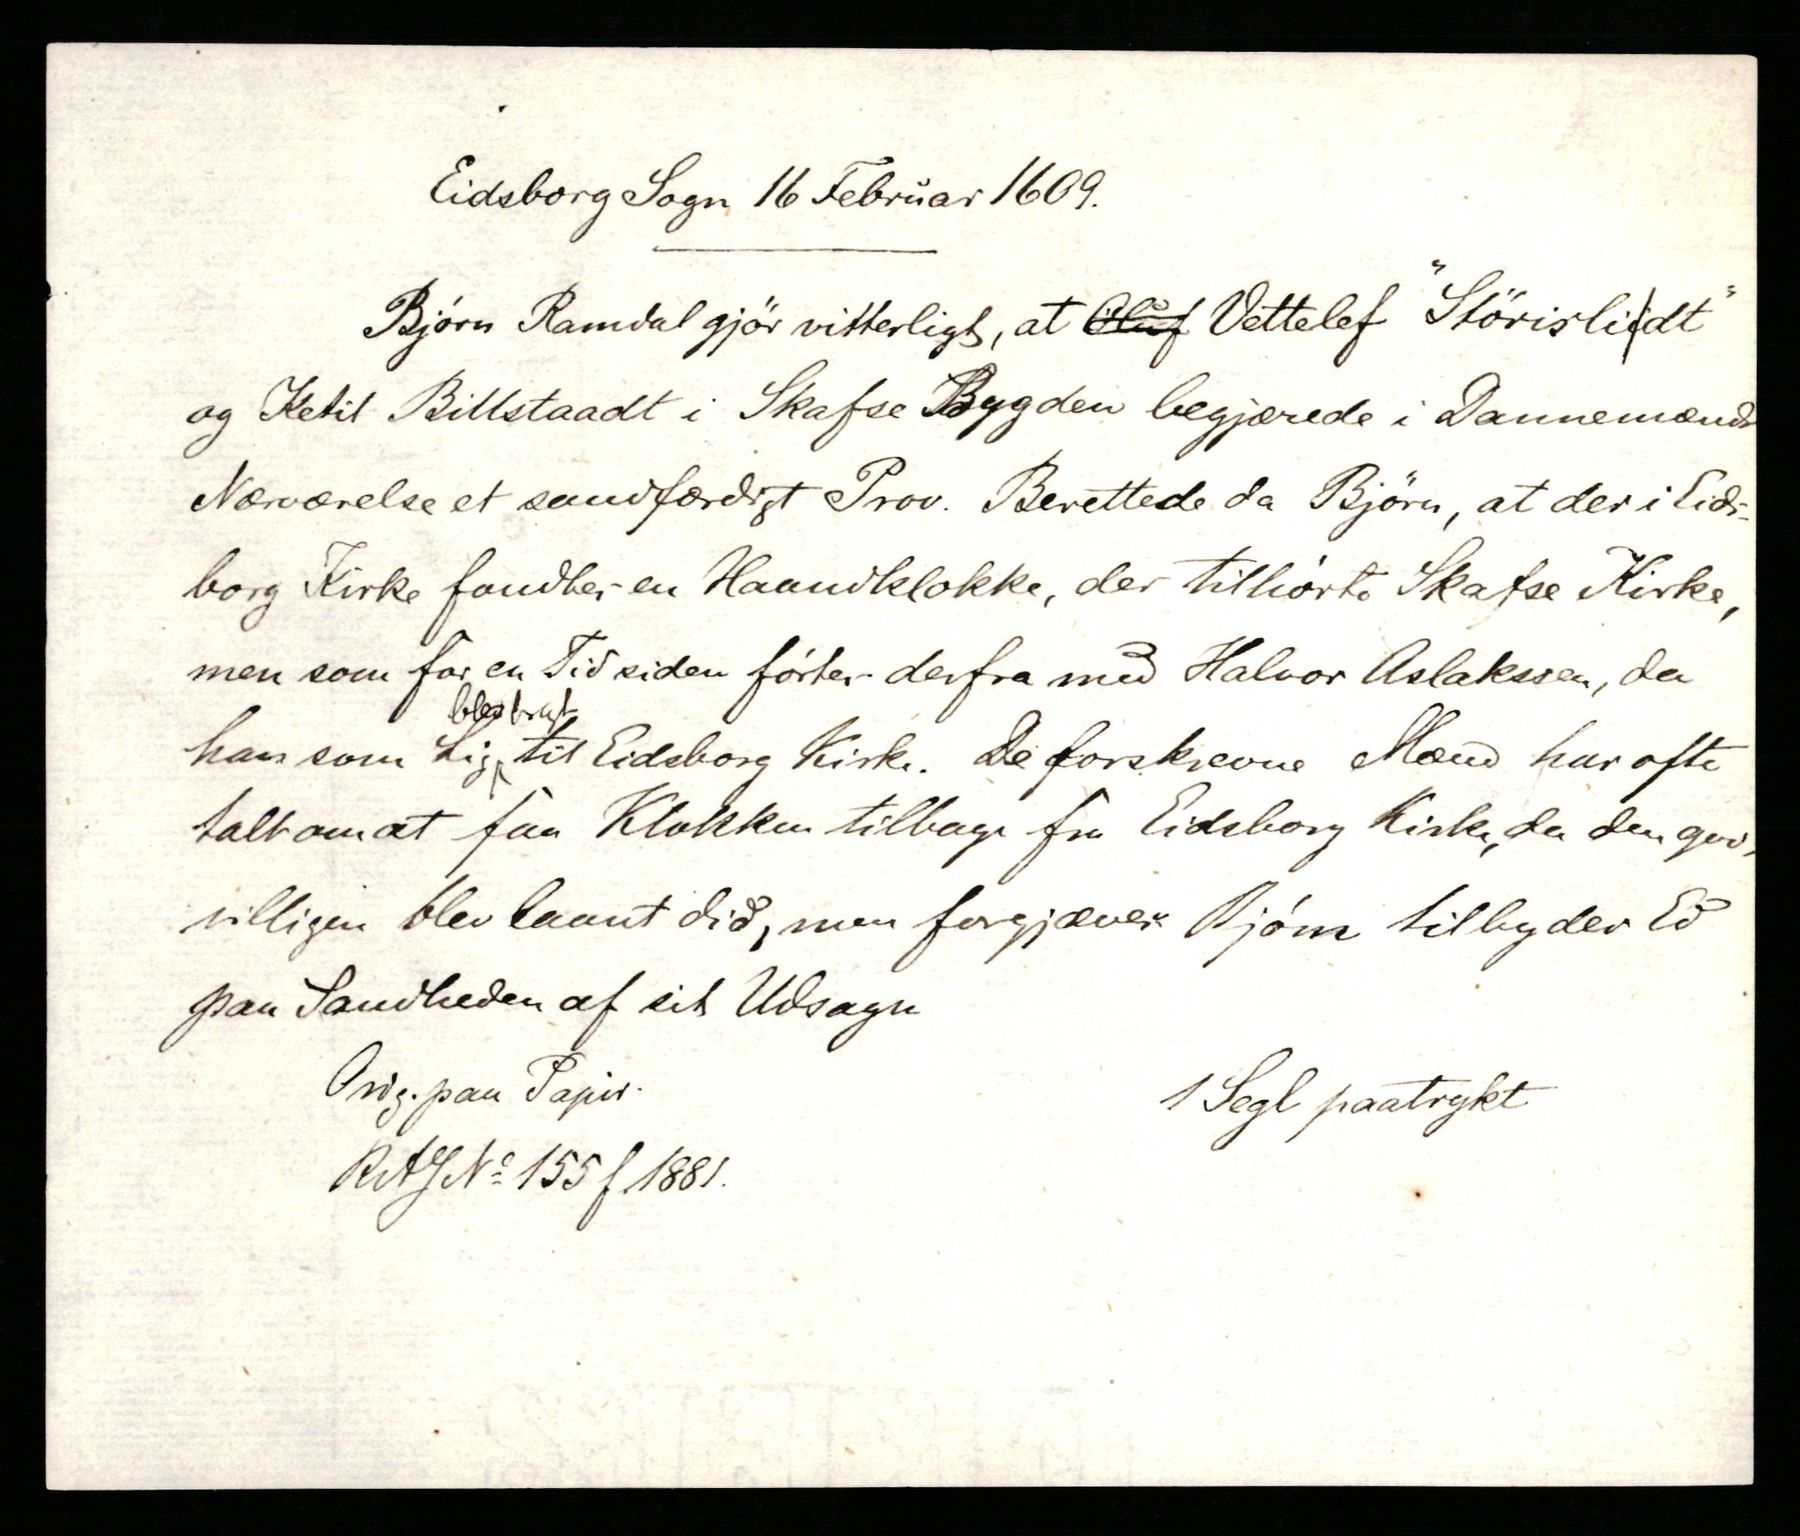 Eidsborg Sogn 16 Februar 1609.
Bjørn Ramdal gjör vitterligt, at Oluf Vettelef "Störislidt"
og Ketil Billstaadt i Skafse Bygden begjærede i Dannemænds
Nærværelse et sandfærdigt Prov. Berettede da Björn, at der i Eids-
borg Kirke fandtes en Haandklokke, der tilhörte Skafse Kirke,
men som for en Tid siden förtes derfra med Halvor Aslakssen, da
blev bragt
han som Lig til Eidsborg Kirke. De forskrevne Mænd har ofte
talt om at faa Klokken tilbage fra Eidsborg Kirke, da den god-
villigen blev laant did, men forgjæves. Bjørn tilbyder Ed
paa Sandheden af sit Udsagn
Orig. paa Papir.
1 Segl paatrykt
RAJ No 155 f 1881.